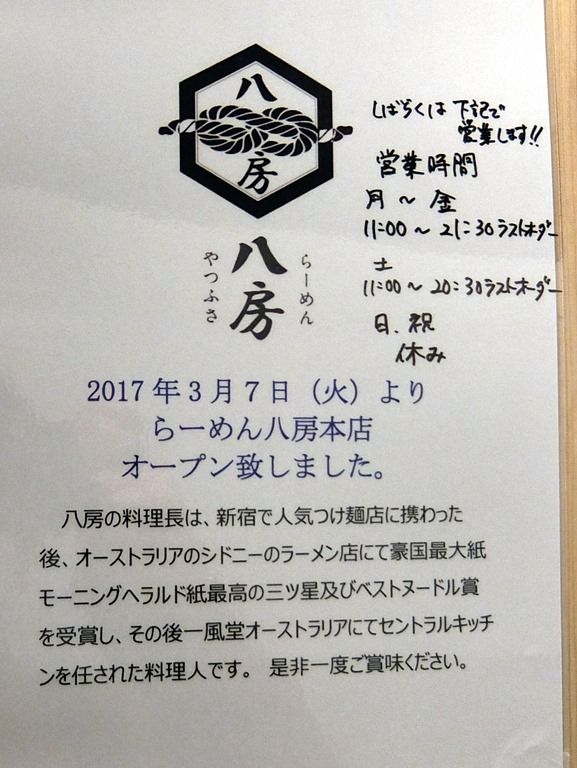 八
房
八房
らーめん
やつふさ
しばらくは 下記で
営業します!!
営業時間
月 〜 金
11:00 〜 21:30 ラストオーダー
土
11:00 〜 20:30 ラストオーダー
日、祝
休み
2017 年 3 月 7 日（火）より
らーめん八房本店
オープン致しました。
八房の料理長は、新宿で人気つけ麺店に携わった
後、オーストラリアのシドニーのラーメン店にて豪国最大紙
モーニングヘラルド紙最高の三ツ星及びベストヌードル賞
を受賞し、その後一風堂オーストラリアにてセントラルキッチ
ンを任された料理人です。 是非一度ご賞味ください。